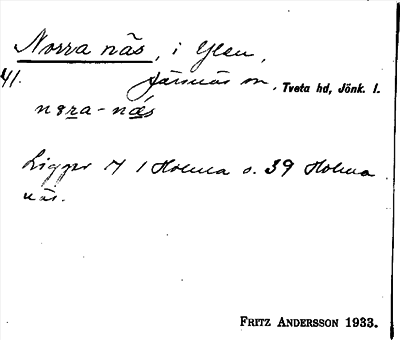 Norra näs, i Ylen,
41. Järsnäs sn. Tveta hd, Jönk. l.
nɷra-næ̀s
Ligger N 1 Holma o. 39 Holma
näs.
FRITZ ANDERSSON 1933.